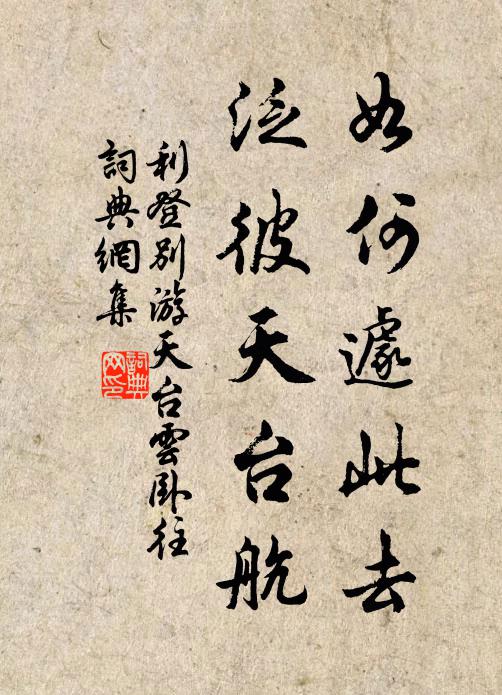 如何遽此去
泛彼天台航
利登别游天台雲卧往
詞典網集
詞典
网印